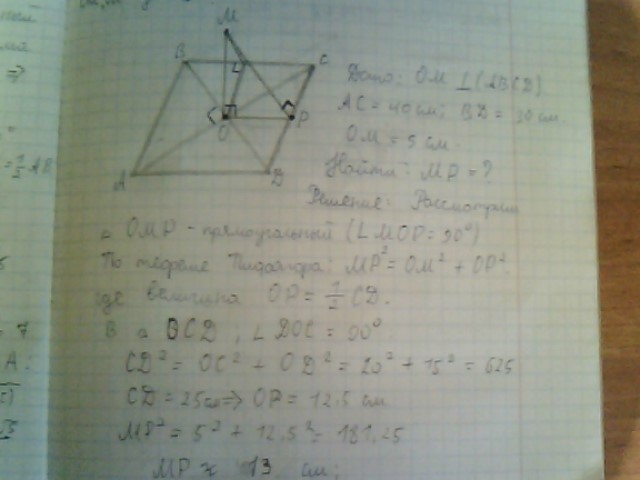 M
B
C
L
O
P
A
D
Дано: OM ⊥ (ABCD).
AC = 40 см; BD = 30 см.
OM = 5 см.
Найти: MP = ?
Решение: Рассмотрим
△ OMP - прямоугольный (∠MOP = 90°)
По теореме Пифагора: MP² = OM² + OP²,
где величина OP = 1/2 CD.
В △ OCD; ∠DOC = 90°
CD² = OC² + OD² = 20² + 15² = 625
CD = 25см ⇒ OP = 12,5 см
MP² = 5² + 12,5² = 181,25
MP ≈ 13 см;
= 1/2 AB
= 7
A: